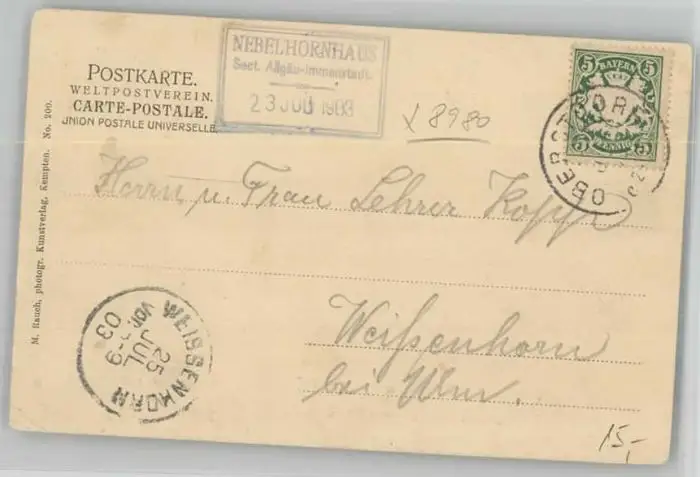 POSTKARTE.
WELTPOSTVEREIN.
CARTE-POSTALE.
UNION POSTALE UNIVERSELLE.
NEBELHORNHAUS
Sect. Allgäu-Immenstadt.
23 JUL 1903
x 8980
5 BAYERN 5
5 PFENNIG 5
OBERSTDORF
Herrn u Frau Lehrer Kopp
Weißenhorn
bei Ulm.
WEISSENHORN
25
JUL
03
M. Rauch, photogr. Kunstverlag, Kempten. No. 200.
15,-